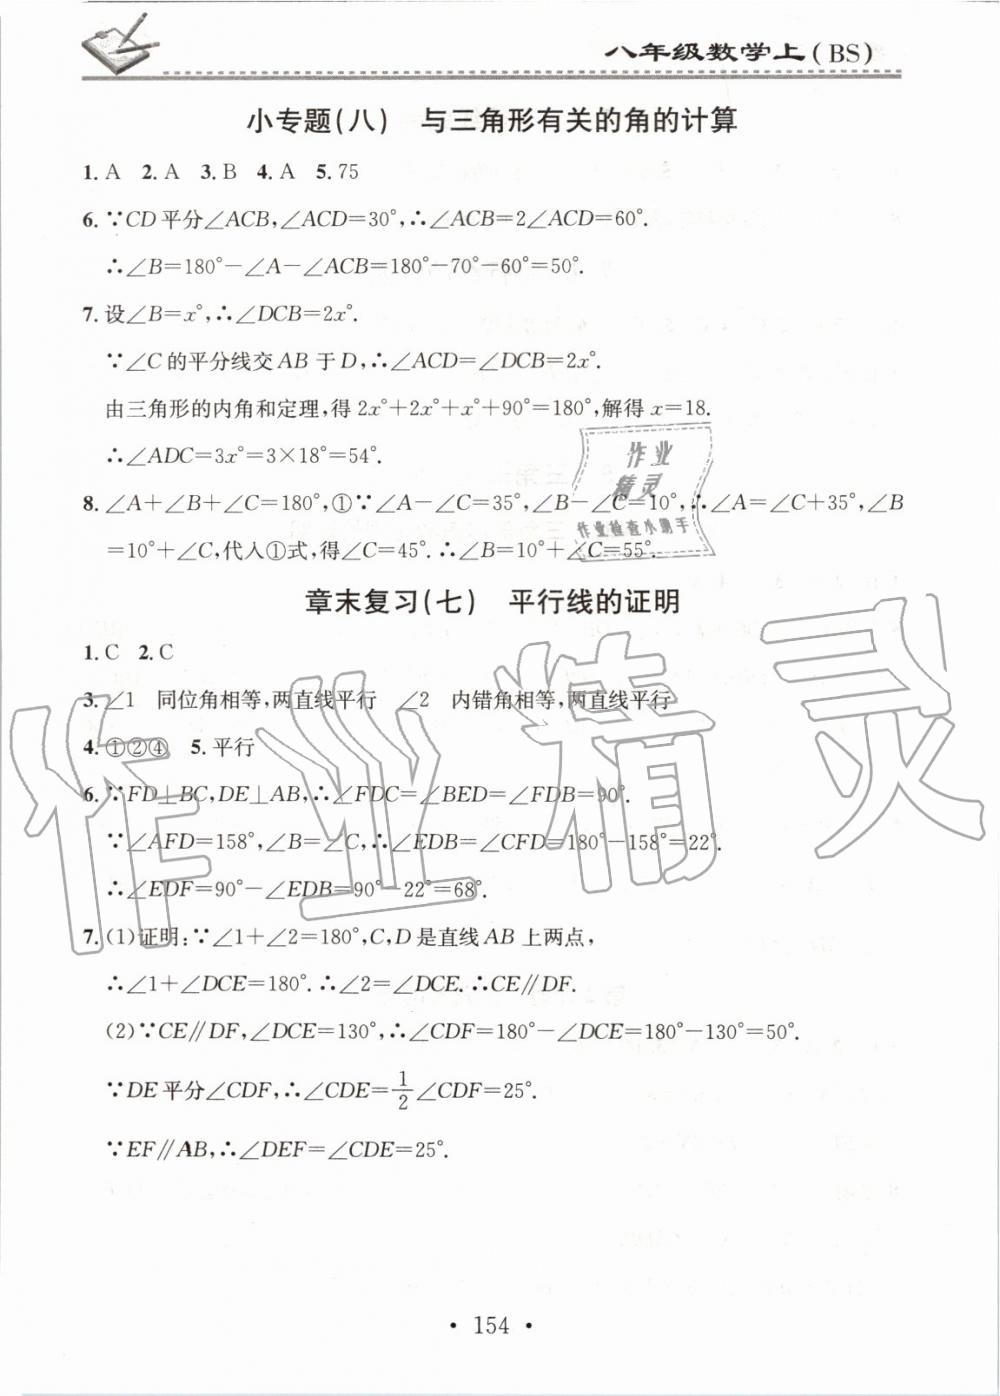 八年级数学上(BS)
小专题(八) 与三角形有关的角的计算
1. A 2. A 3. B 4. A 5. 75
6. ∵CD平分∠ACB,∠ACD=30°,∴∠ACB=2∠ACD=60°.
∴∠B=180°-∠A-∠ACB=180°-70°-60°=50°.
7. 设∠B=x°,∴∠DCB=2x°.
∵∠C的平分线交AB于D,∴∠ACD=∠DCB=2x°.
由三角形的内角和定理,得2x°+2x°+x°+90°=180°,解得x=18.
∴∠ADC=3x°=3×18°=54°.
8. ∠A+∠B+∠C=180°,①∵∠A-∠C=35°,∠B-∠C=10°,∴∠A=∠C+35°,∠B
=10°+∠C,代入①式,得∠C=45°.∴∠B=10°+∠C=55°.
作业
精灵
作业检查小助手
章末复习(七) 平行线的证明
1. C 2. C
3. ∠1 同位角相等,两直线平行 ∠2 内错角相等,两直线平行
4. ①②④ 5. 平行
6. ∵FD⊥BC,DE⊥AB,∴∠FDC=∠BED=∠FDB=90°.
∵∠AFD=158°,∠B=∠C,∴∠EDB=∠CFD=180°-158°=22°.
∴∠EDF=90°-∠EDB=90°-22°=68°.
7. (1)证明:∵∠1+∠2=180°,C,D是直线AB上两点,
∴∠1+∠DCE=180°.∴∠2=∠DCE.∴CE∥DF.
(2)∵CE∥DF,∠DCE=130°,∴∠CDF=180°-∠DCE=180°-130°=50°.
∵DE平分∠CDF,∴∠CDE=1/2∠CDF=25°.
∵EF∥AB,∴∠DEF=∠CDE=25°.
作业精灵
· 154 ·